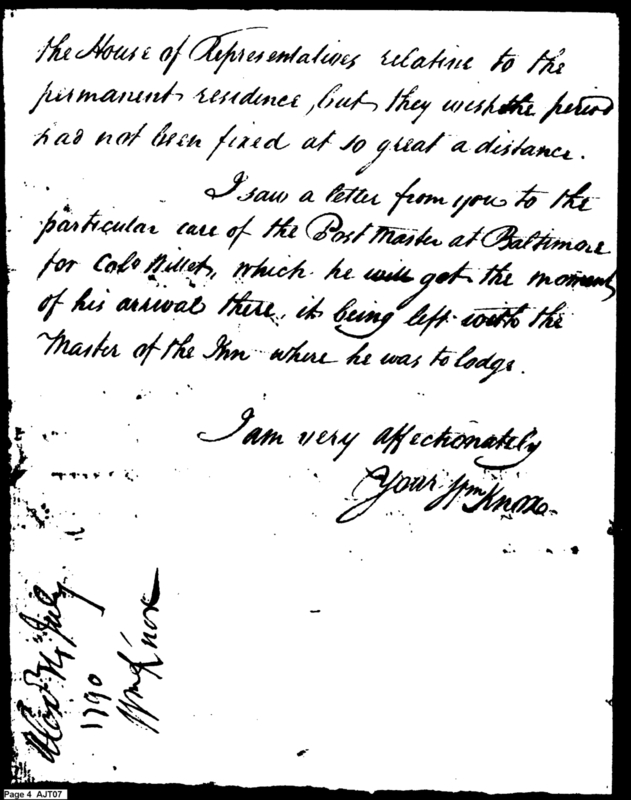 the House of Representatives relative to the
permanent residence, but they wish the period
had not been fixed at so great a distance.
I saw a letter from you to the
particular care of the Post Master at Baltimore
for Colo Willet, which he will get the moment
of his arrival there, it being left with the
Master of the Inn where he was to lodge.
I am very affectionately
Your Wm Knox
July
1790
Wm Knox
Page 4 AJT07